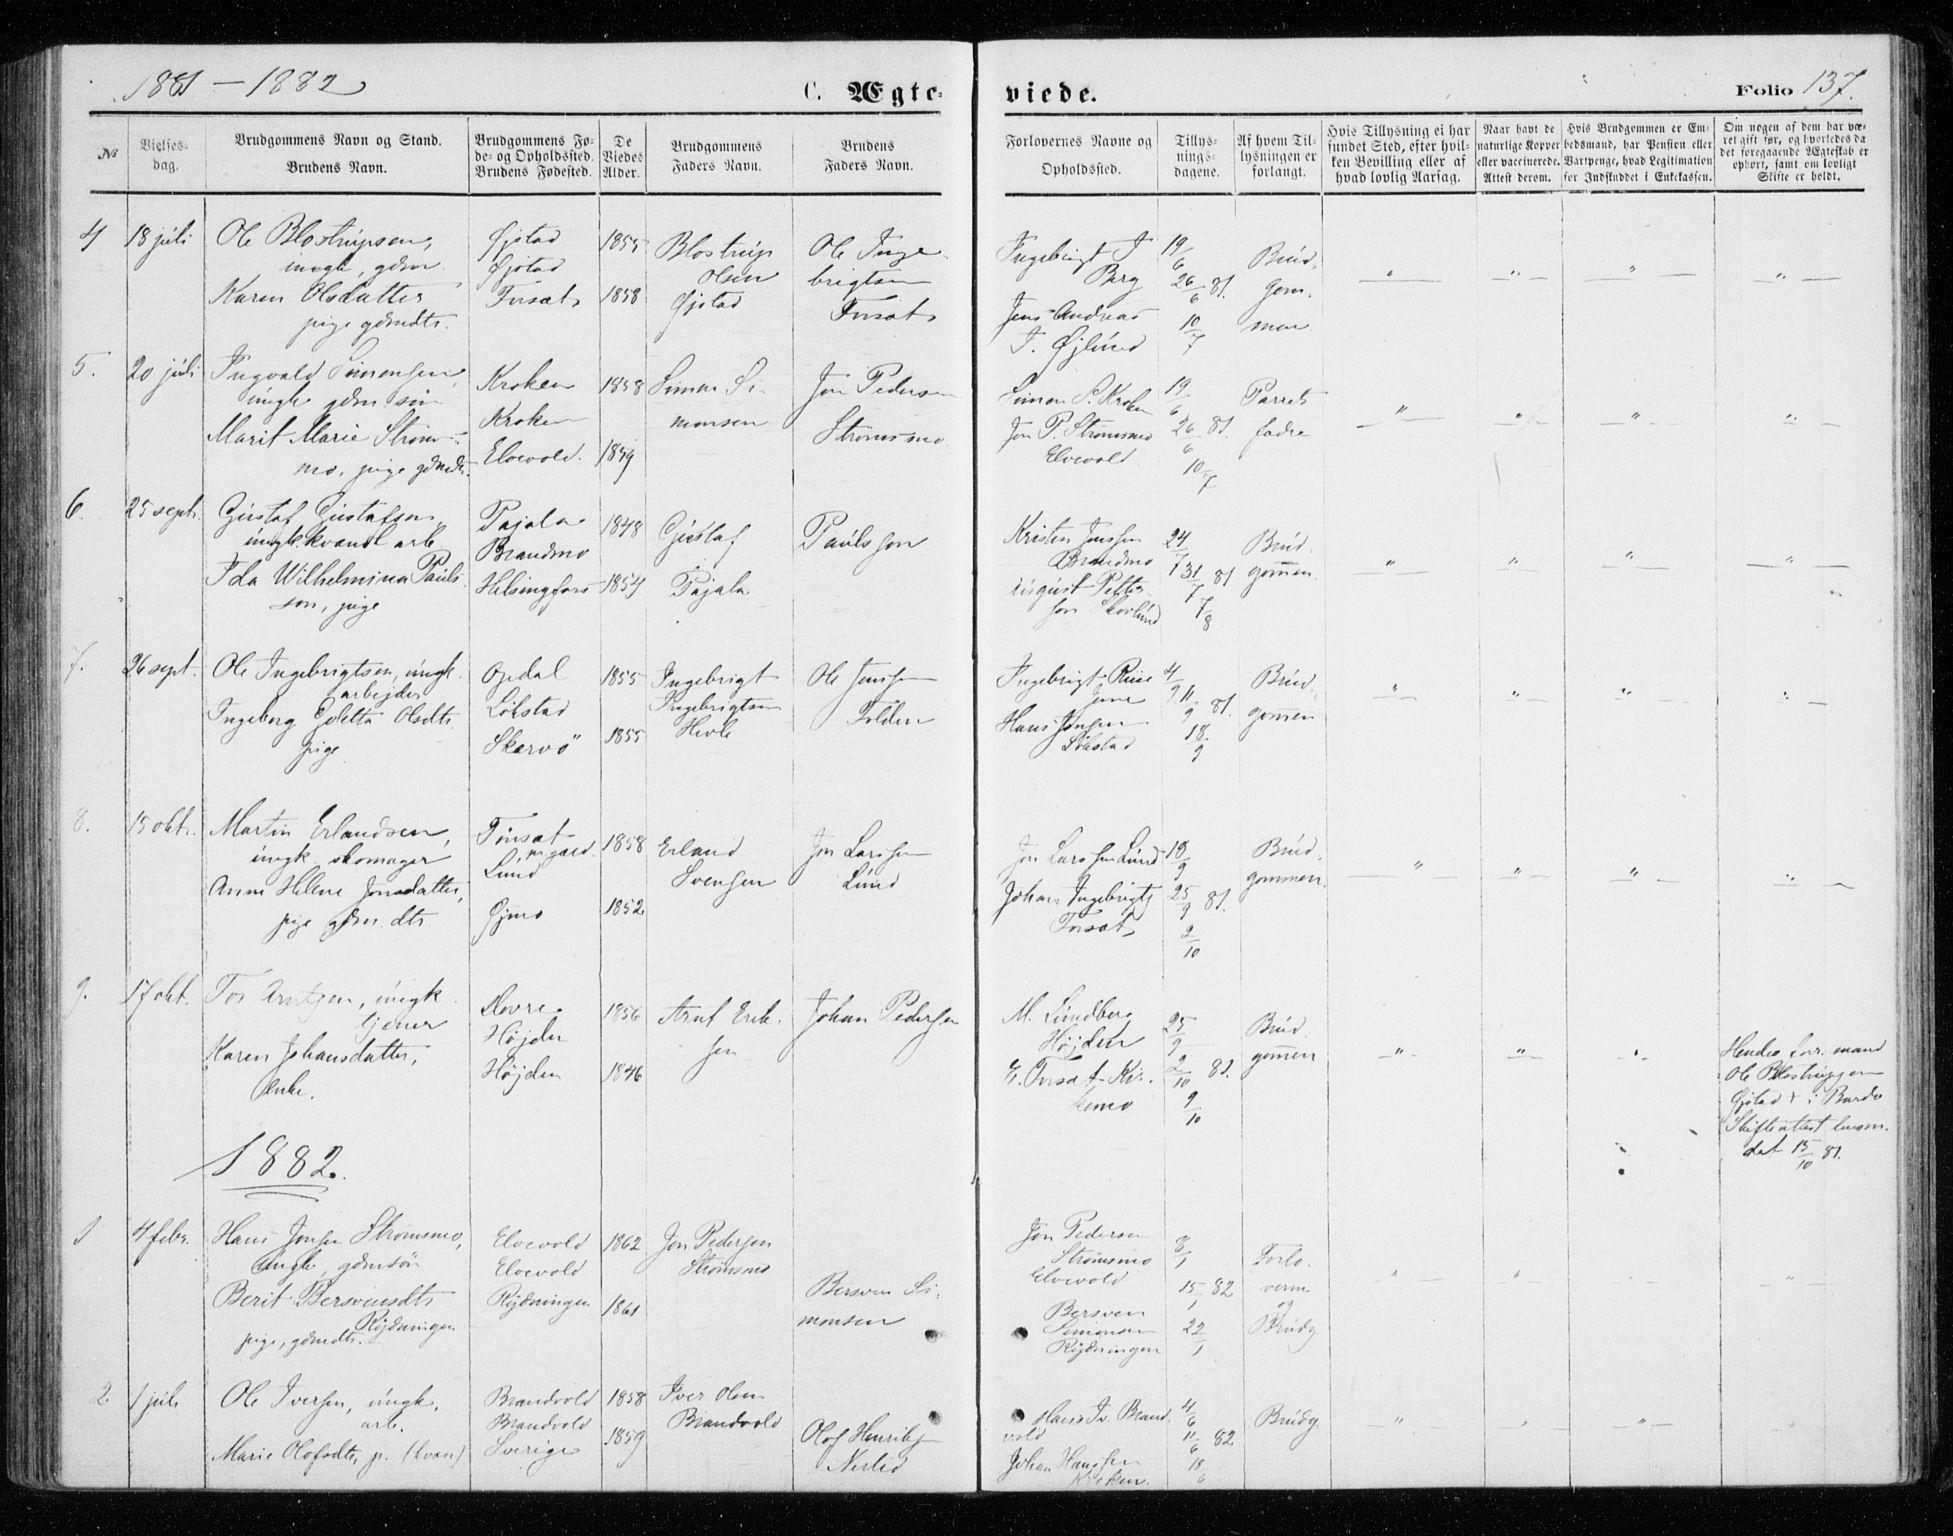 1881 – 1882
C. Ægte-
viede.
Folio 137.
№
Vielses-
dag.
Brudgommens Navn og Stand.
Brudens Navn.
Brudgommens Fø-
de- og Opholdssted.
Brudens Fødested.
De
Viedes
Alder.
Brudgommens
Faders Navn.
Brudens
Faders Navn.
Forlovernes Navne og
Opholdssted.
Tillys-
nings-
dagene.
Af hvem Til-
lysningen er
forlangt.
Hvis Tillysning ei har
fundet Sted, efter hvil-
ken Bevilling eller af
hvad lovlig Aarsag.
Naar havt de
naturlige Kopper
eller vaccinerede.
Attest derom.
Hvis Brudgommen er Em-
bedsmand, har Pension eller
Vartpenge, hvad Legitimation
for Indskuddet i Enkekassen.
Om nogen af dem har væ-
ret gift før, og hvorledes da
det foregaaende Ægteskab er
ophørt, samt om lovligt
Skifte er holdt.
4
18 júli
Ole Blostrúpsen,
úngk, gdm
Karen Olsdatter
pige gdmdtr.
Øjstad
Øjstad
Fosat
1855
1858
Blostrúp
Olsen
Øjstad
Ole Inge-
brigtsen
Fosat
Ingebrigt J
Berg
Jens Andreas
J. Øjlúnd
19/6
26/6 81.
10/7
Brúd-
gom-
men
5.
20 júli
Ingvald Simonsen,
úngk gdm søn
Marit Marie Strøms-
mo, pige gdmdtr.
Kroken
Kroken
Elvevold.
1858
1859
Simon Si-
monsen
Jon Pedersen
Strømsmo
Simon S. Kroken
Jon P. Strømsmo
Elvevold
19/6
26/6 81.
10/7
Parrets
fædre
6.
25 sept.
Gústaf Gústafson,
úngk. kvænsk arb
Ida Wilhelmina Paúls-
son, pige
Pajala
Brandmo
Helsingfors
1848
1854
Gústaf
Pajala
Paúlsson
Kristen Jenssen
Brandmo
Aúgúst Petter-
sen Skovlúnd
24/7
31/7 81
7/8
Brúd-
gommen
7.
26 sept.
Ole Ingebrigtsen, úngk.
arbejder
Ingeborg Edetta Olsdtr.
pige
Opdal
Løkstad
Skervö
1855
1855
Ingebrigt
Ingebrigtsen
Hevle
Ole Jenssen
Folden
Ingebrigt Riise
Hans Jensen
Løkstad
4/9
11/9 81.
18/9
Brúd-
gommen
8.
15 okt.
Martin Erlandsen,
úngk. skomager
Anne Helene Jonsdatter,
pige gdm. dtr.
Tönsæt
Lúnd
Øjmo
1858
1852
Erland
Svensen
Jon Larssen
Lúnd
Jon Larssen Lúnd
Johan Ingebrigts
Fosat
18/9
25/9 81.
2/10
Brúd-
gommen.
9.
17 okt.
Tor Arntzen, úngk
tjener
Karen Johansdatter,
Enke.
Dovre
Højden
Højden
1856
1846
Arnt Erik-
sen
Johan Pedersen
M. Lúndberg
Højden
E. Fosat Kir-
kemo
25/9
2/10 81.
9/10
Brúd-
gommen
Hendes forr. mand
Ole Blostrúpsen
Øjstad † i Bardo
Skifteattest
dat 15/10 81.
1882.
1
4 febr.
Hans Jonsen Strømsmo,
úngk, gdmsøn
Berit Bersvensdtr
Rydningen
pige, gdmdtr.
Elvevold
Elvevold
Rydningen
1862
1861
Jon Pedersen
Strømsmo
Bersven Si-
monsen
Jon Pedersen
Strømsmo
Elvevold
Bersven
Simonsen
Rydningen
8/1
15/1 82
22/1
Forlo-
verne
og
Brúdg.
2
1 júli
Ole Iversen, úngk.
arb.
Marie Olofsdtr, p. (kvæn)
Brandvold
Brandvold
Sverige
1858
1859
Iver Olsen
Brandvold
Olof Henriksen
Nerlid
Hans Iv. Brand-
vold
Johan Hanssen
Kroken.
4/6
11/6 82
18/6
Brúdg.